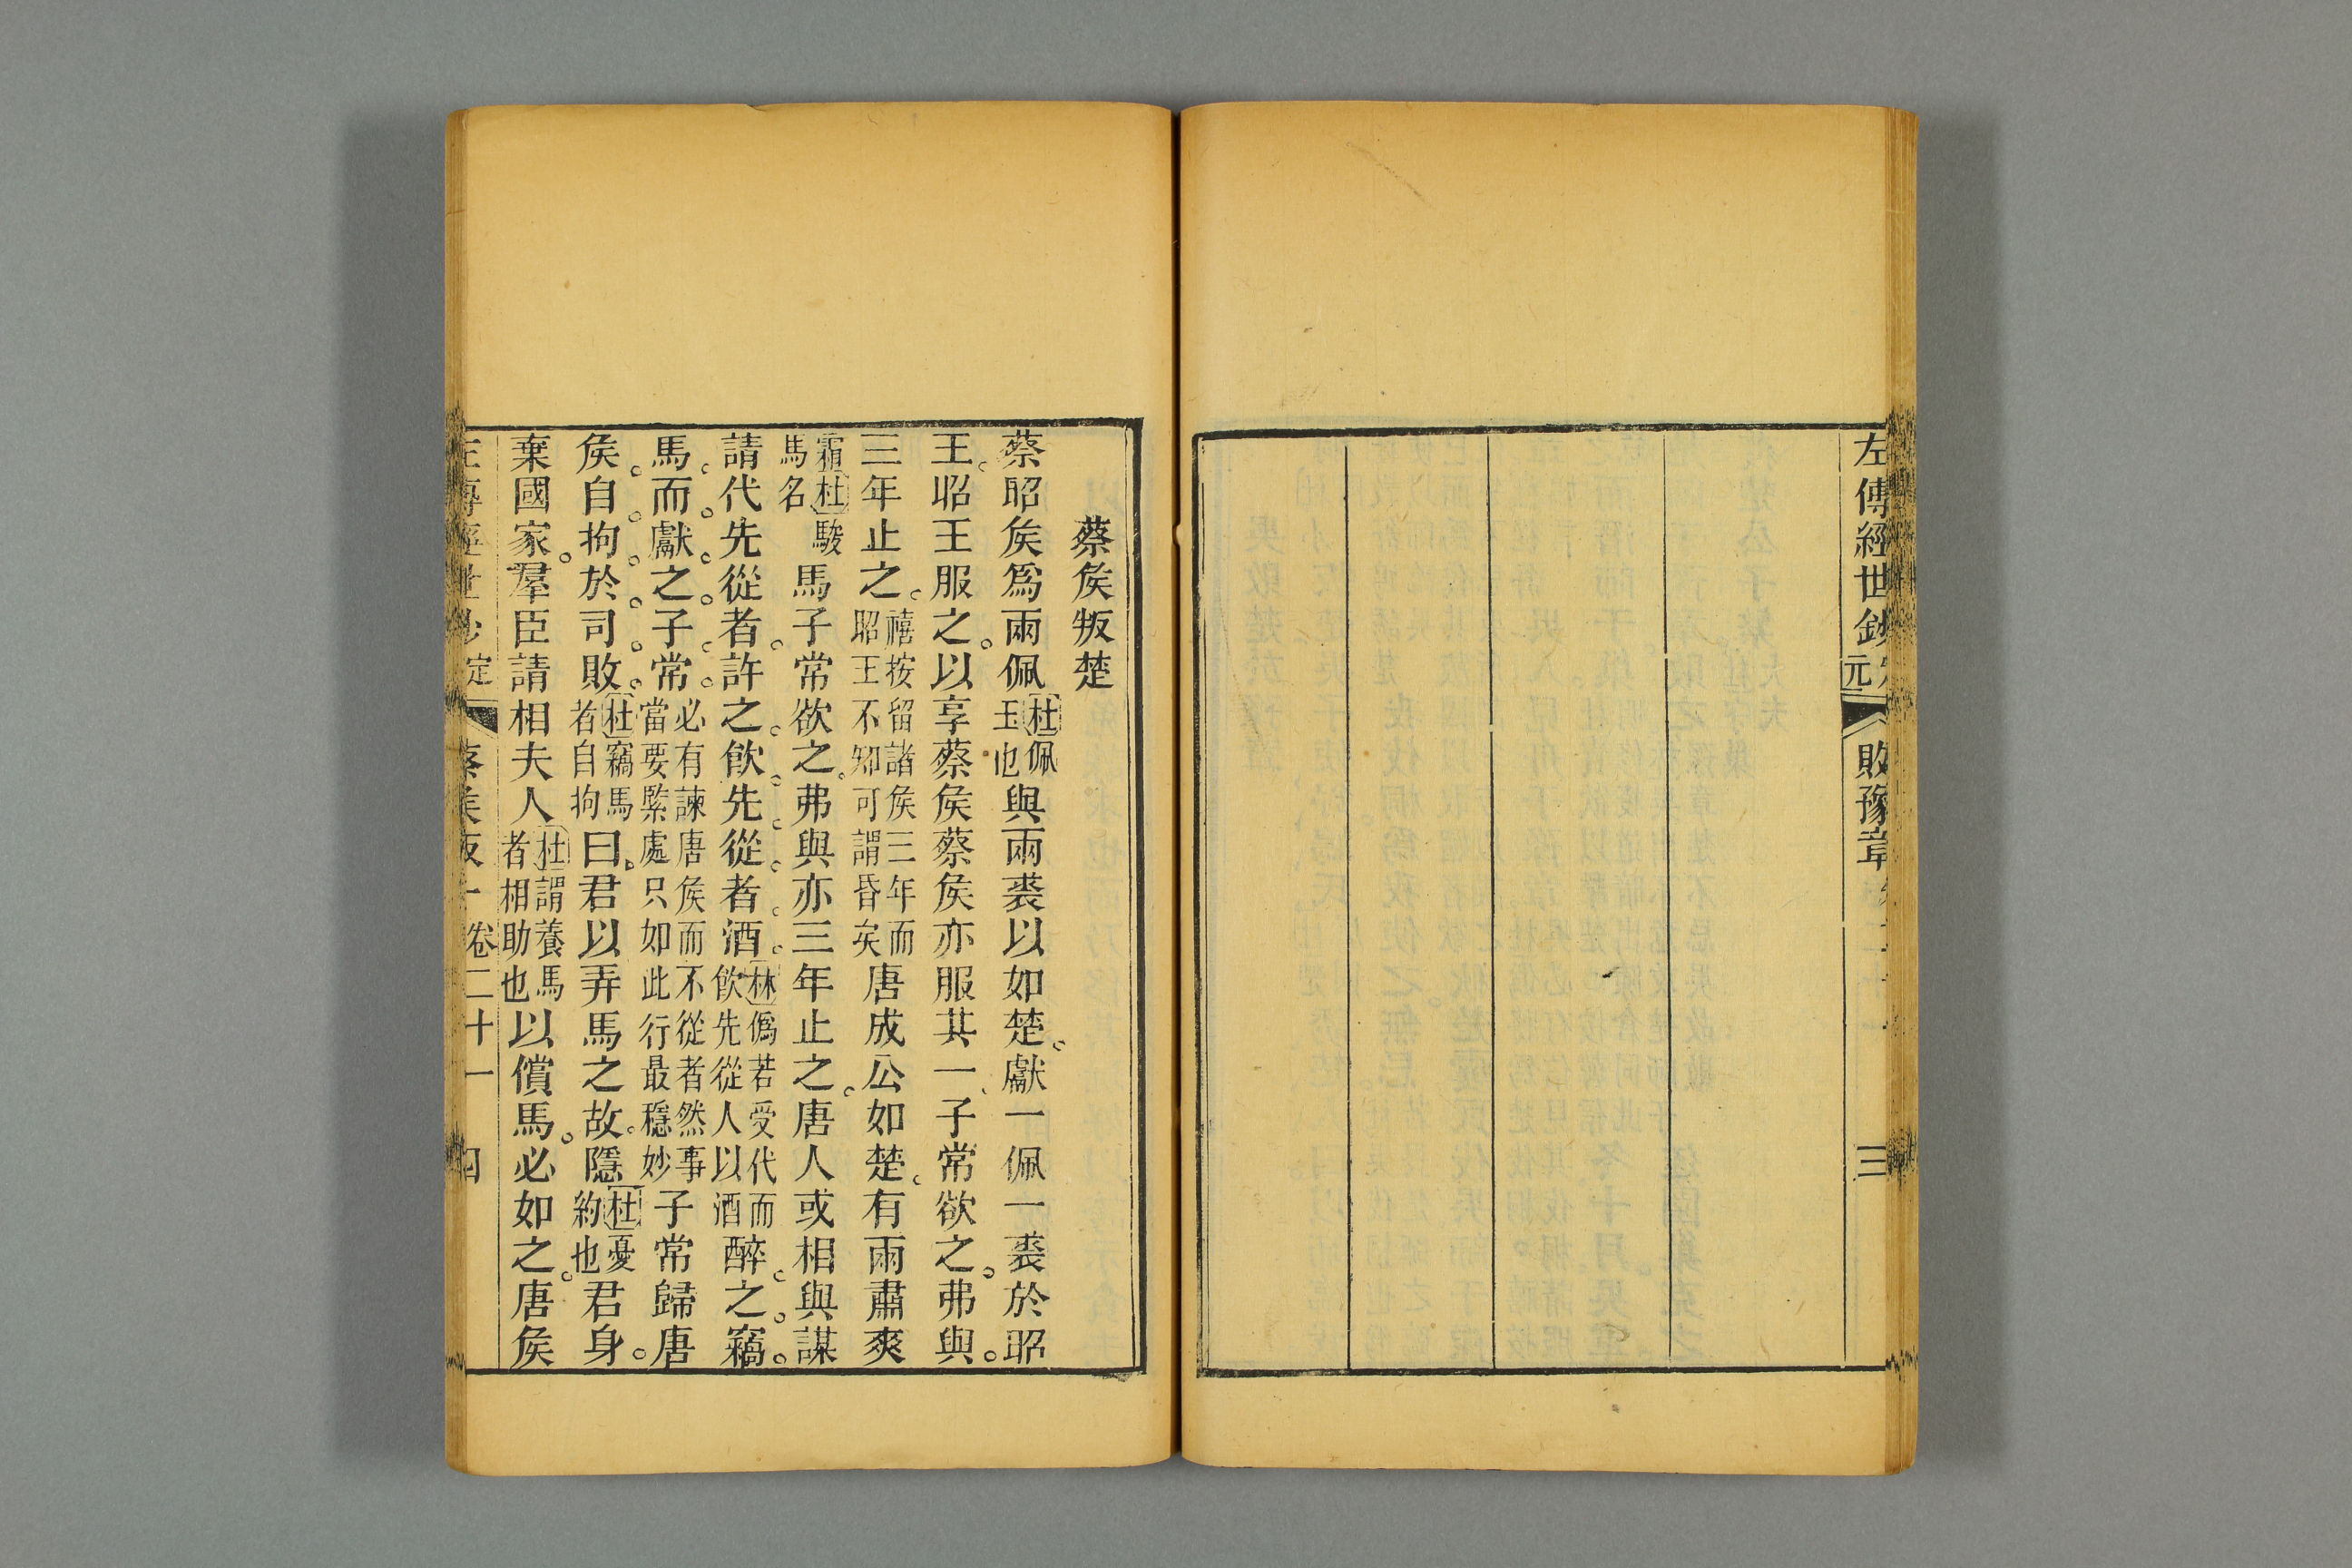 左傳經世鈔
元
敗豫章
三
蔡矦叛楚
蔡昭矦爲兩佩杜佩玉也與兩裘以如楚。獻一佩一裘於昭
王。昭王服之。以享蔡矦蔡矦亦服其一、子常欲之。弗與。
三年止之。禧按留諸矦三年而昭王不知可謂昏矣唐成公如楚。有兩肅爽
霜杜駿馬名馬子常欲之。弗與亦三年止之。唐人或相與謀
請代先從者。許之。飮。先從。者。酒。林僞若受代而飮先從人以酒醉。之。竊。
馬。而。獻。之。子。常。必有諫唐矦而不從者然事當要緊處只如此行最穩妙子常歸唐
矦。自。拘。於。司。敗。杜竊馬者自拘曰。君以弄馬之故。隱杜憂約也君身。
棄國家。羣臣請相夫人杜謂養馬者相助也以償馬。必如之。唐矦
定
卷二十一
四